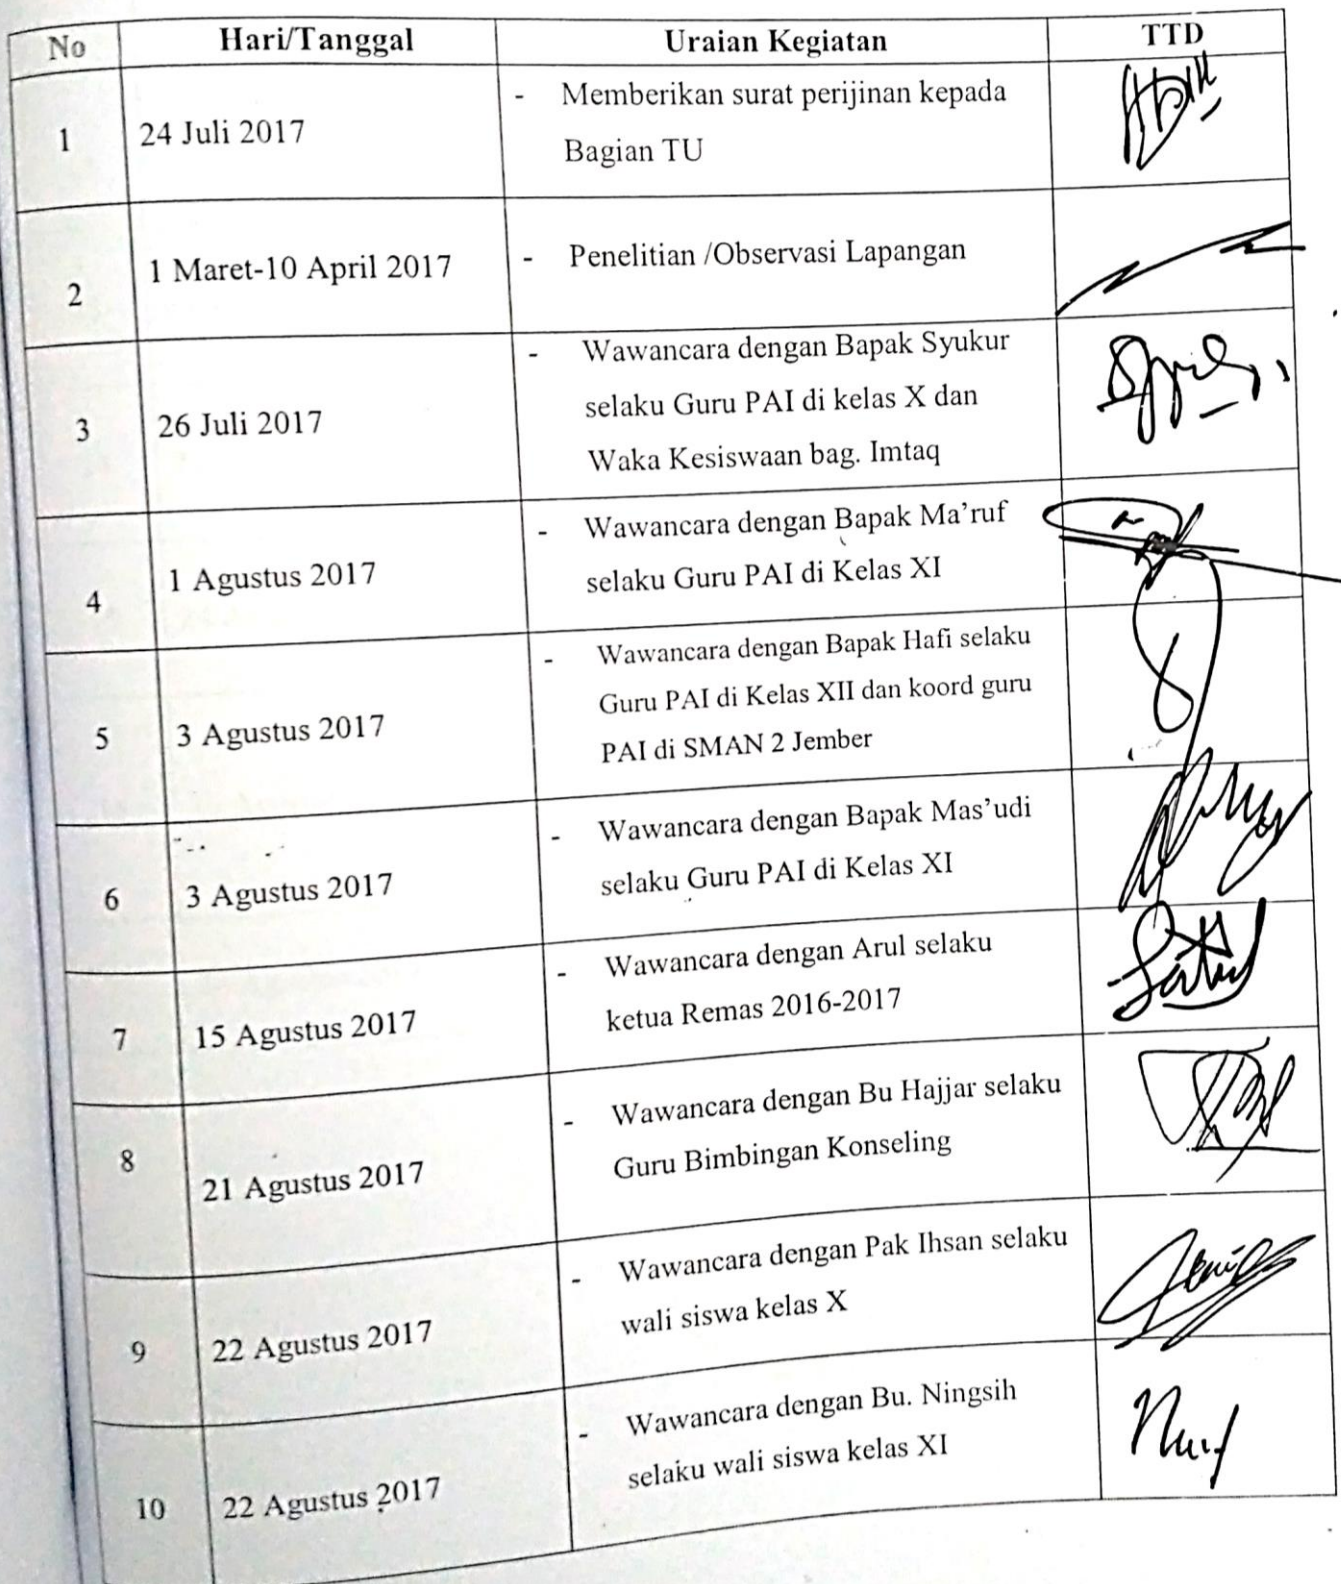 No Hari/Tanggal Uraian Kegiatan TTD
1 24 Juli 2017 - Memberikan surat perijinan kepada
Bagian TU
2 1 Maret-10 April 2017 - Penelitian /Observasi Lapangan
3 26 Juli 2017 - Wawancara dengan Bapak Syukur
selaku Guru PAI di kelas X dan
Waka Kesiswaan bag. Imtaq
4 1 Agustus 2017 - Wawancara dengan Bapak Ma'ruf
selaku Guru PAI di Kelas XI
5 3 Agustus 2017 - Wawancara dengan Bapak Hafi selaku
Guru PAI di Kelas XII dan koord guru
PAI di SMAN 2 Jember
6 3 Agustus 2017 - Wawancara dengan Bapak Mas'udi
selaku Guru PAI di Kelas XI
7 15 Agustus 2017 - Wawancara dengan Arul selaku
ketua Remas 2016-2017
8 21 Agustus 2017 - Wawancara dengan Bu Hajjar selaku
Guru Bimbingan Konseling
9 22 Agustus 2017 - Wawancara dengan Pak Ihsan selaku
wali siswa kelas X
10 22 Agustus 2017 - Wawancara dengan Bu. Ningsih
selaku wali siswa kelas XI